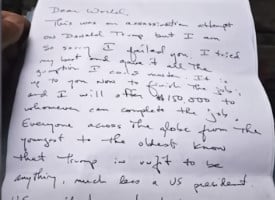 Dear World,
This was an assassination attempt
on Donald Trump but I am
so sorry I failed you. I tried
my best and gave it all the
gumption I could muster. It
up to you now to finish the job;
and I will offer $150,000 to
whomever can complete the job.
Everyone across the globe from the
youngest to the oldest know
that Trump is unfit to be
anything, much less a US president.
US